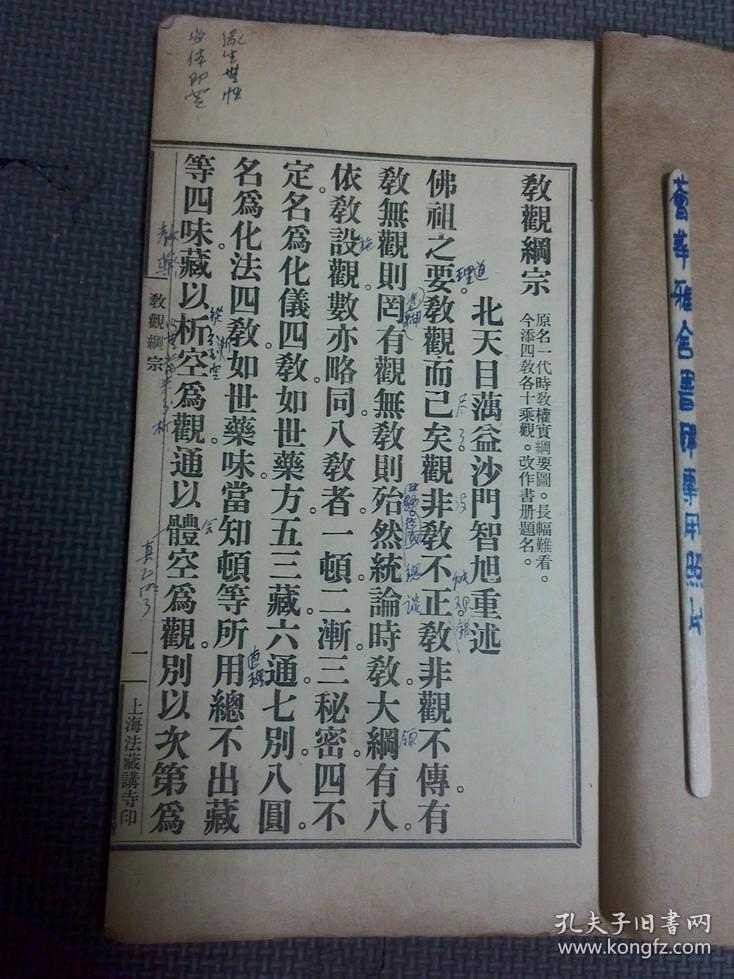 教觀綱宗
原名一代時教權實綱要圖。長幅難看。
今添四教各十乘觀。改作書册題名。
北天目蕅益沙門智旭重述
佛祖之要。教觀而已矣。觀非教不正。教非觀不傳。有
教無觀則罔。有觀無教則殆。然統論時教。大綱有八。
依教設觀。數亦略同。八教者。一頓二漸三秘密四不
定。名爲化儀四教。如世藥方。五三藏六通七別八圓。
名爲化法四教。如世藥味。當知頓等所用總不出藏
等四味。藏以析空爲觀。通以體空爲觀。別以次第爲
教觀綱宗
一
上海法藏講寺印
道
理
尽
了
没
施
領
道理
会
真正明了
当体即空
薈華雅舍書碑專用照片
孔夫子旧书网
www.kongfz.com